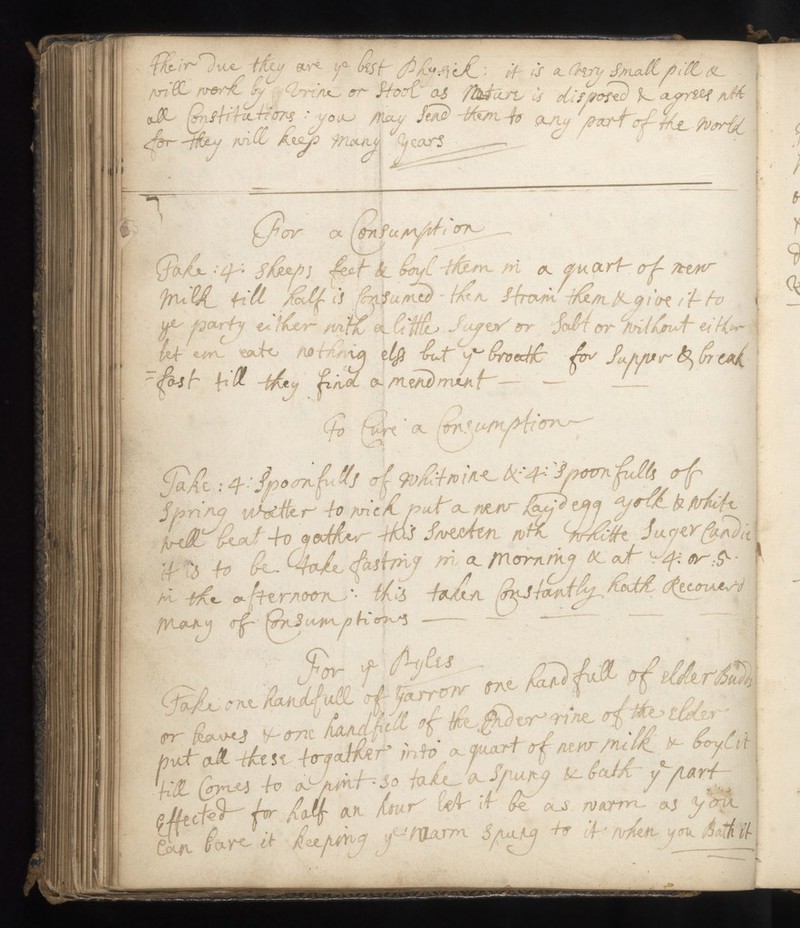 their due they are ye best Physick : it is a very small pill &
will work by Vrine or Stool as Nature is disposed & agrees wth
all Constitutions : you may Send them to any part of the world
for they will keep many years
For a Consumption
Take : 4 : sheeps feet & boyl them in a quart of new
milk till half is Consumed then strain them & give it to
ye party either with a little Suger or Salt or without either
let em eate nothing els but ye broath for Supper & break
=fast till they find a mendment
To Cure a Consumption
Take : 4 : Spoonfulls of whitwine & : 4 : Spoonfulls of
Spring watter to wich put a new Layd egg yolk & white
well beat to gather this Sweeten wth whitte Suger Candie
it is to be take fasting in a morning & at : 4 : or : 5 :
in the afternoon : this taken Constantly hath Recouerd
many of Consumptions
For ye Pyles
Take one handfull of Yarrow one handfull of elder Budds
or leaves & one handfull of the Inder rine of the elder
put all these togather into a quart of new milk & boyl it
till Comes to a pint . so take a Spung & bath ye part
effected for half an hour let it be as warm as you
Can bare it keeping ye warm Spung to it when you Bath it